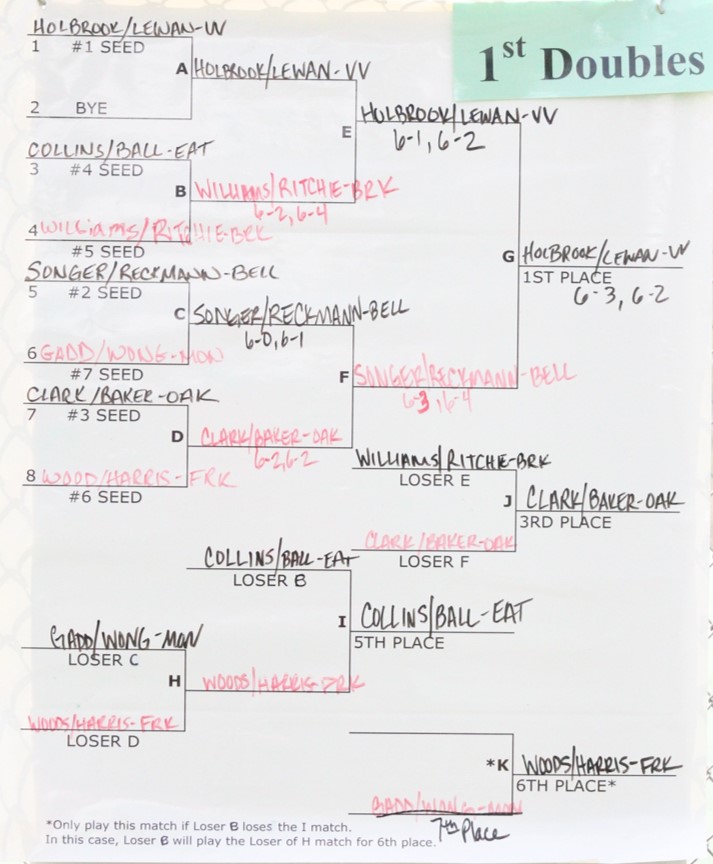 1st Doubles
HOLBROOK/LEWAN-VV
1 #1 SEED
A HOLBROOK/LEWAN-VV
2 BYE
HOLBROOK/LEWAN-VV
E 6-1, 6-2
COLLINS/BALL-EAT
3 #4 SEED
B WILLIAMS/RITCHIE-BRK
6-2, 6-4
4 WILLIAMS/RITCHIE-BRK
#5 SEED
G HOLBROOK/LEWAN-VV
1ST PLACE
6-3, 6-2
SONGER/RECKMANN-BELL
5 #2 SEED
C SONGER/RECKMANN-BELL
6-0, 6-1
6 GADD/WONG-MON
#7 SEED
F SONGER/RECKMANN-BELL
6-3, 6-4
CLARK/BAKER-OAK
7 #3 SEED
D CLARK/BAKER-OAK
6-2, 6-2
8 WOOD/HARRIS-FRK
#6 SEED
WILLIAMS/RITCHIE-BRK
LOSER E
J CLARK/BAKER-OAK
3RD PLACE
CLARK/BAKER-OAK
LOSER F
COLLINS/BALL-EAT
LOSER B
I COLLINS/BALL-EAT
5TH PLACE
GADD/WONG-MON
LOSER C
H WOODS/HARRIS-FRK
WOODS/HARRIS-FRK
LOSER D
*K WOODS/HARRIS-FRK
6TH PLACE*
GADD/WONG-MON
7th Place
*Only play this match if Loser B loses the I match.
In this case, Loser B will play the Loser of H match for 6th place.